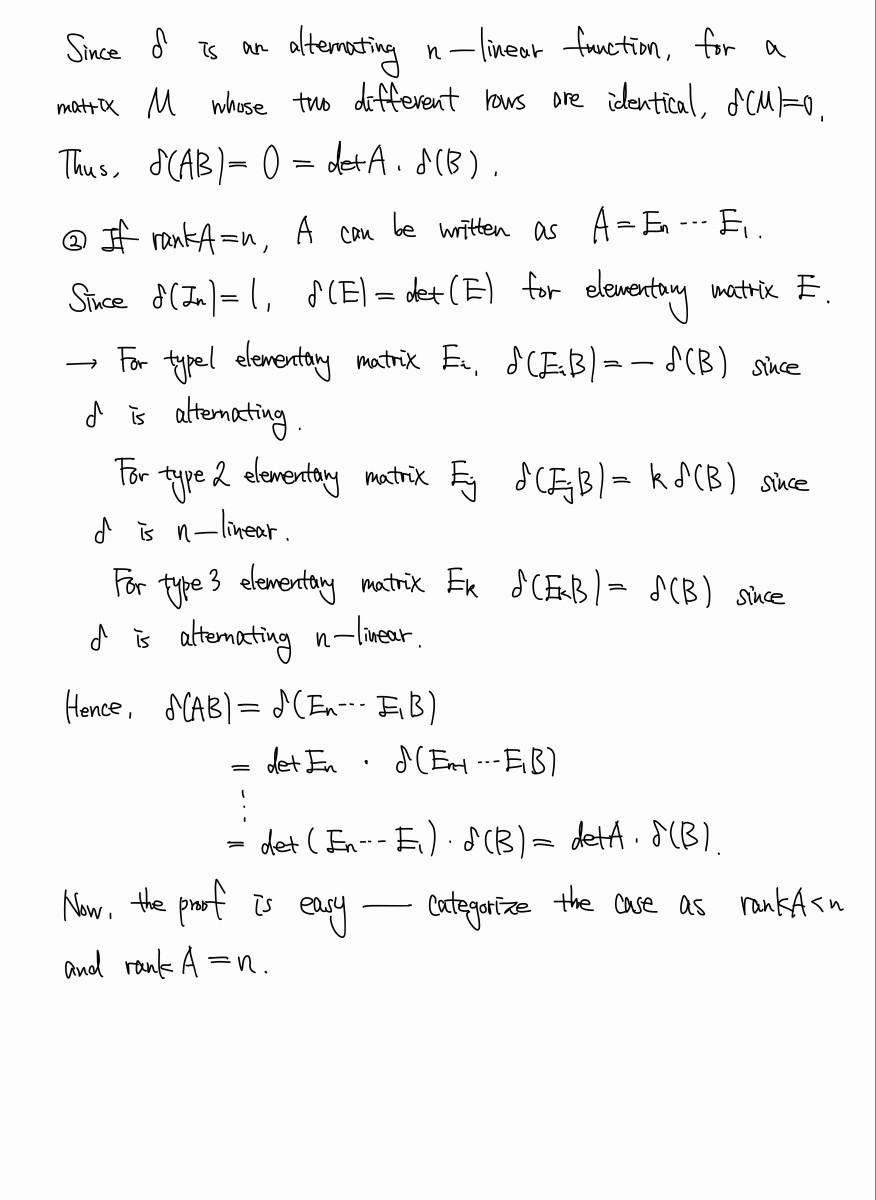 Since δ is an alternating n-linear function, for a
matrix M whose two different rows are identical, δ(M)=0.
Thus, δ(AB) = 0 = detA · δ(B).
② If rankA=n, A can be written as A = En ··· E1.
Since δ(In)=1, δ(E) = det(E) for elementary matrix E.
→ For type1 elementary matrix Ei, δ(EiB) = - δ(B) since
δ is alternating.
For type 2 elementary matrix Ej δ(EjB) = k δ(B) since
δ is n-linear.
For type 3 elementary matrix Ek δ(EkB) = δ(B) since
δ is alternating n-linear.
Hence, δ(AB) = δ(En··· E1B)
= det En · δ(En-1 ··· E1B)
⋮
= det(En··· E1) · δ(B) = detA · δ(B).
Now, the proof is easy — categorize the case as rankA<n
and rank A = n.